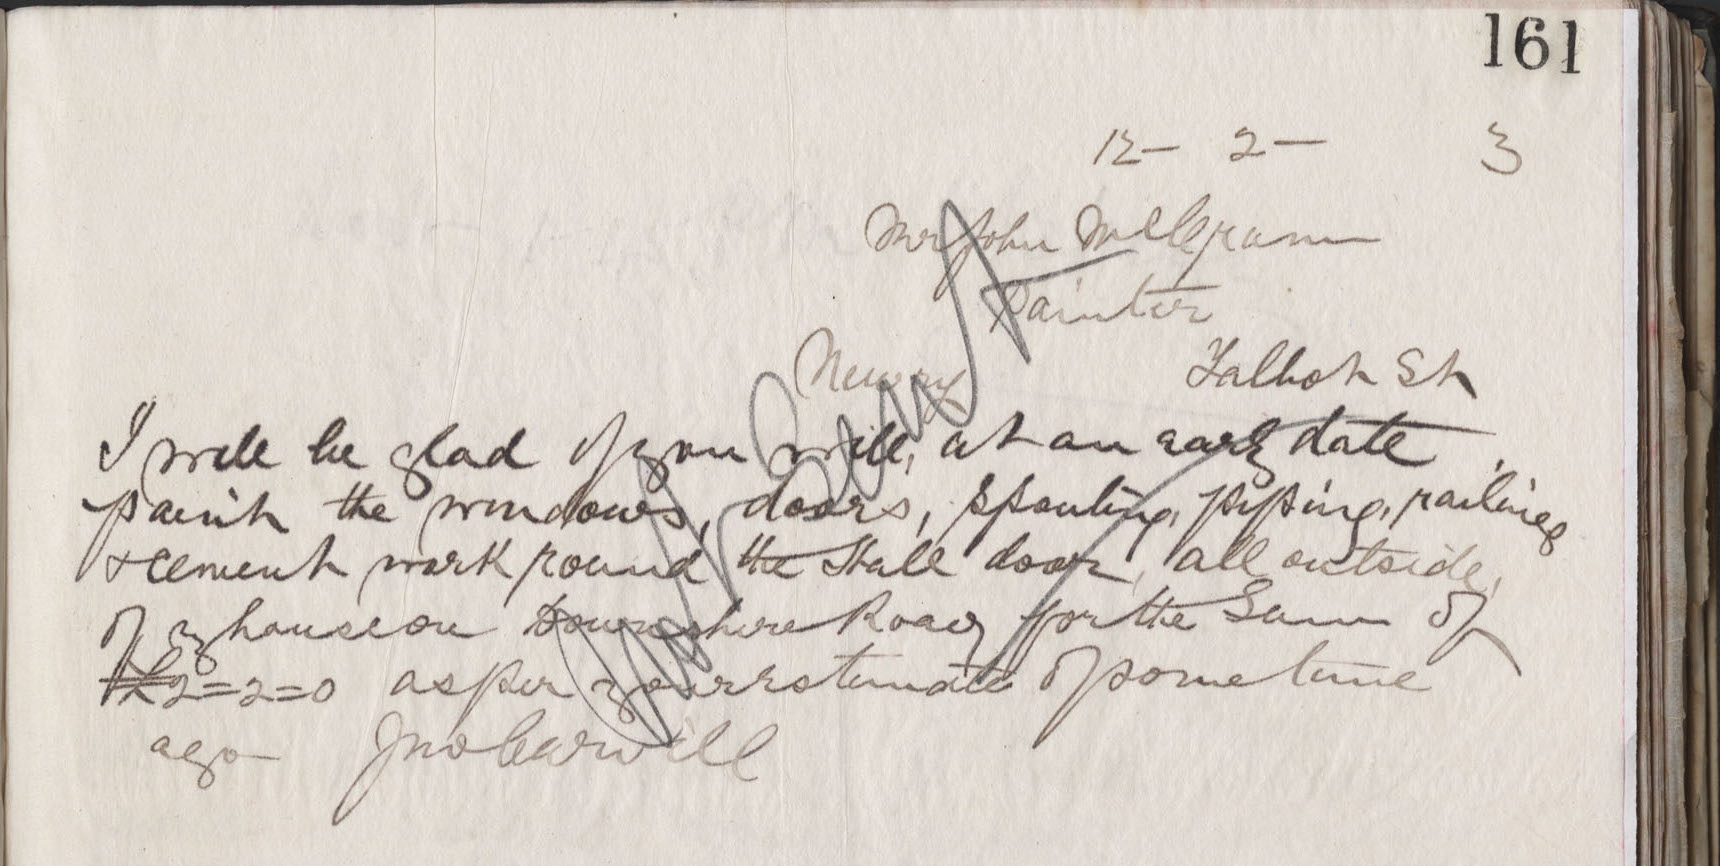 161
12 - 2 - 3
Mr John McGrann
Painter
Newry Talbot St
I will be glad if you will, at an early date
paint the windows, doors, spouting, piping, railings
& cement work round the Hall door, all outside,
of my house on Downshire Road for the Sum of
£2=2=0 as per your estimate of some time
ago Jno Carvill